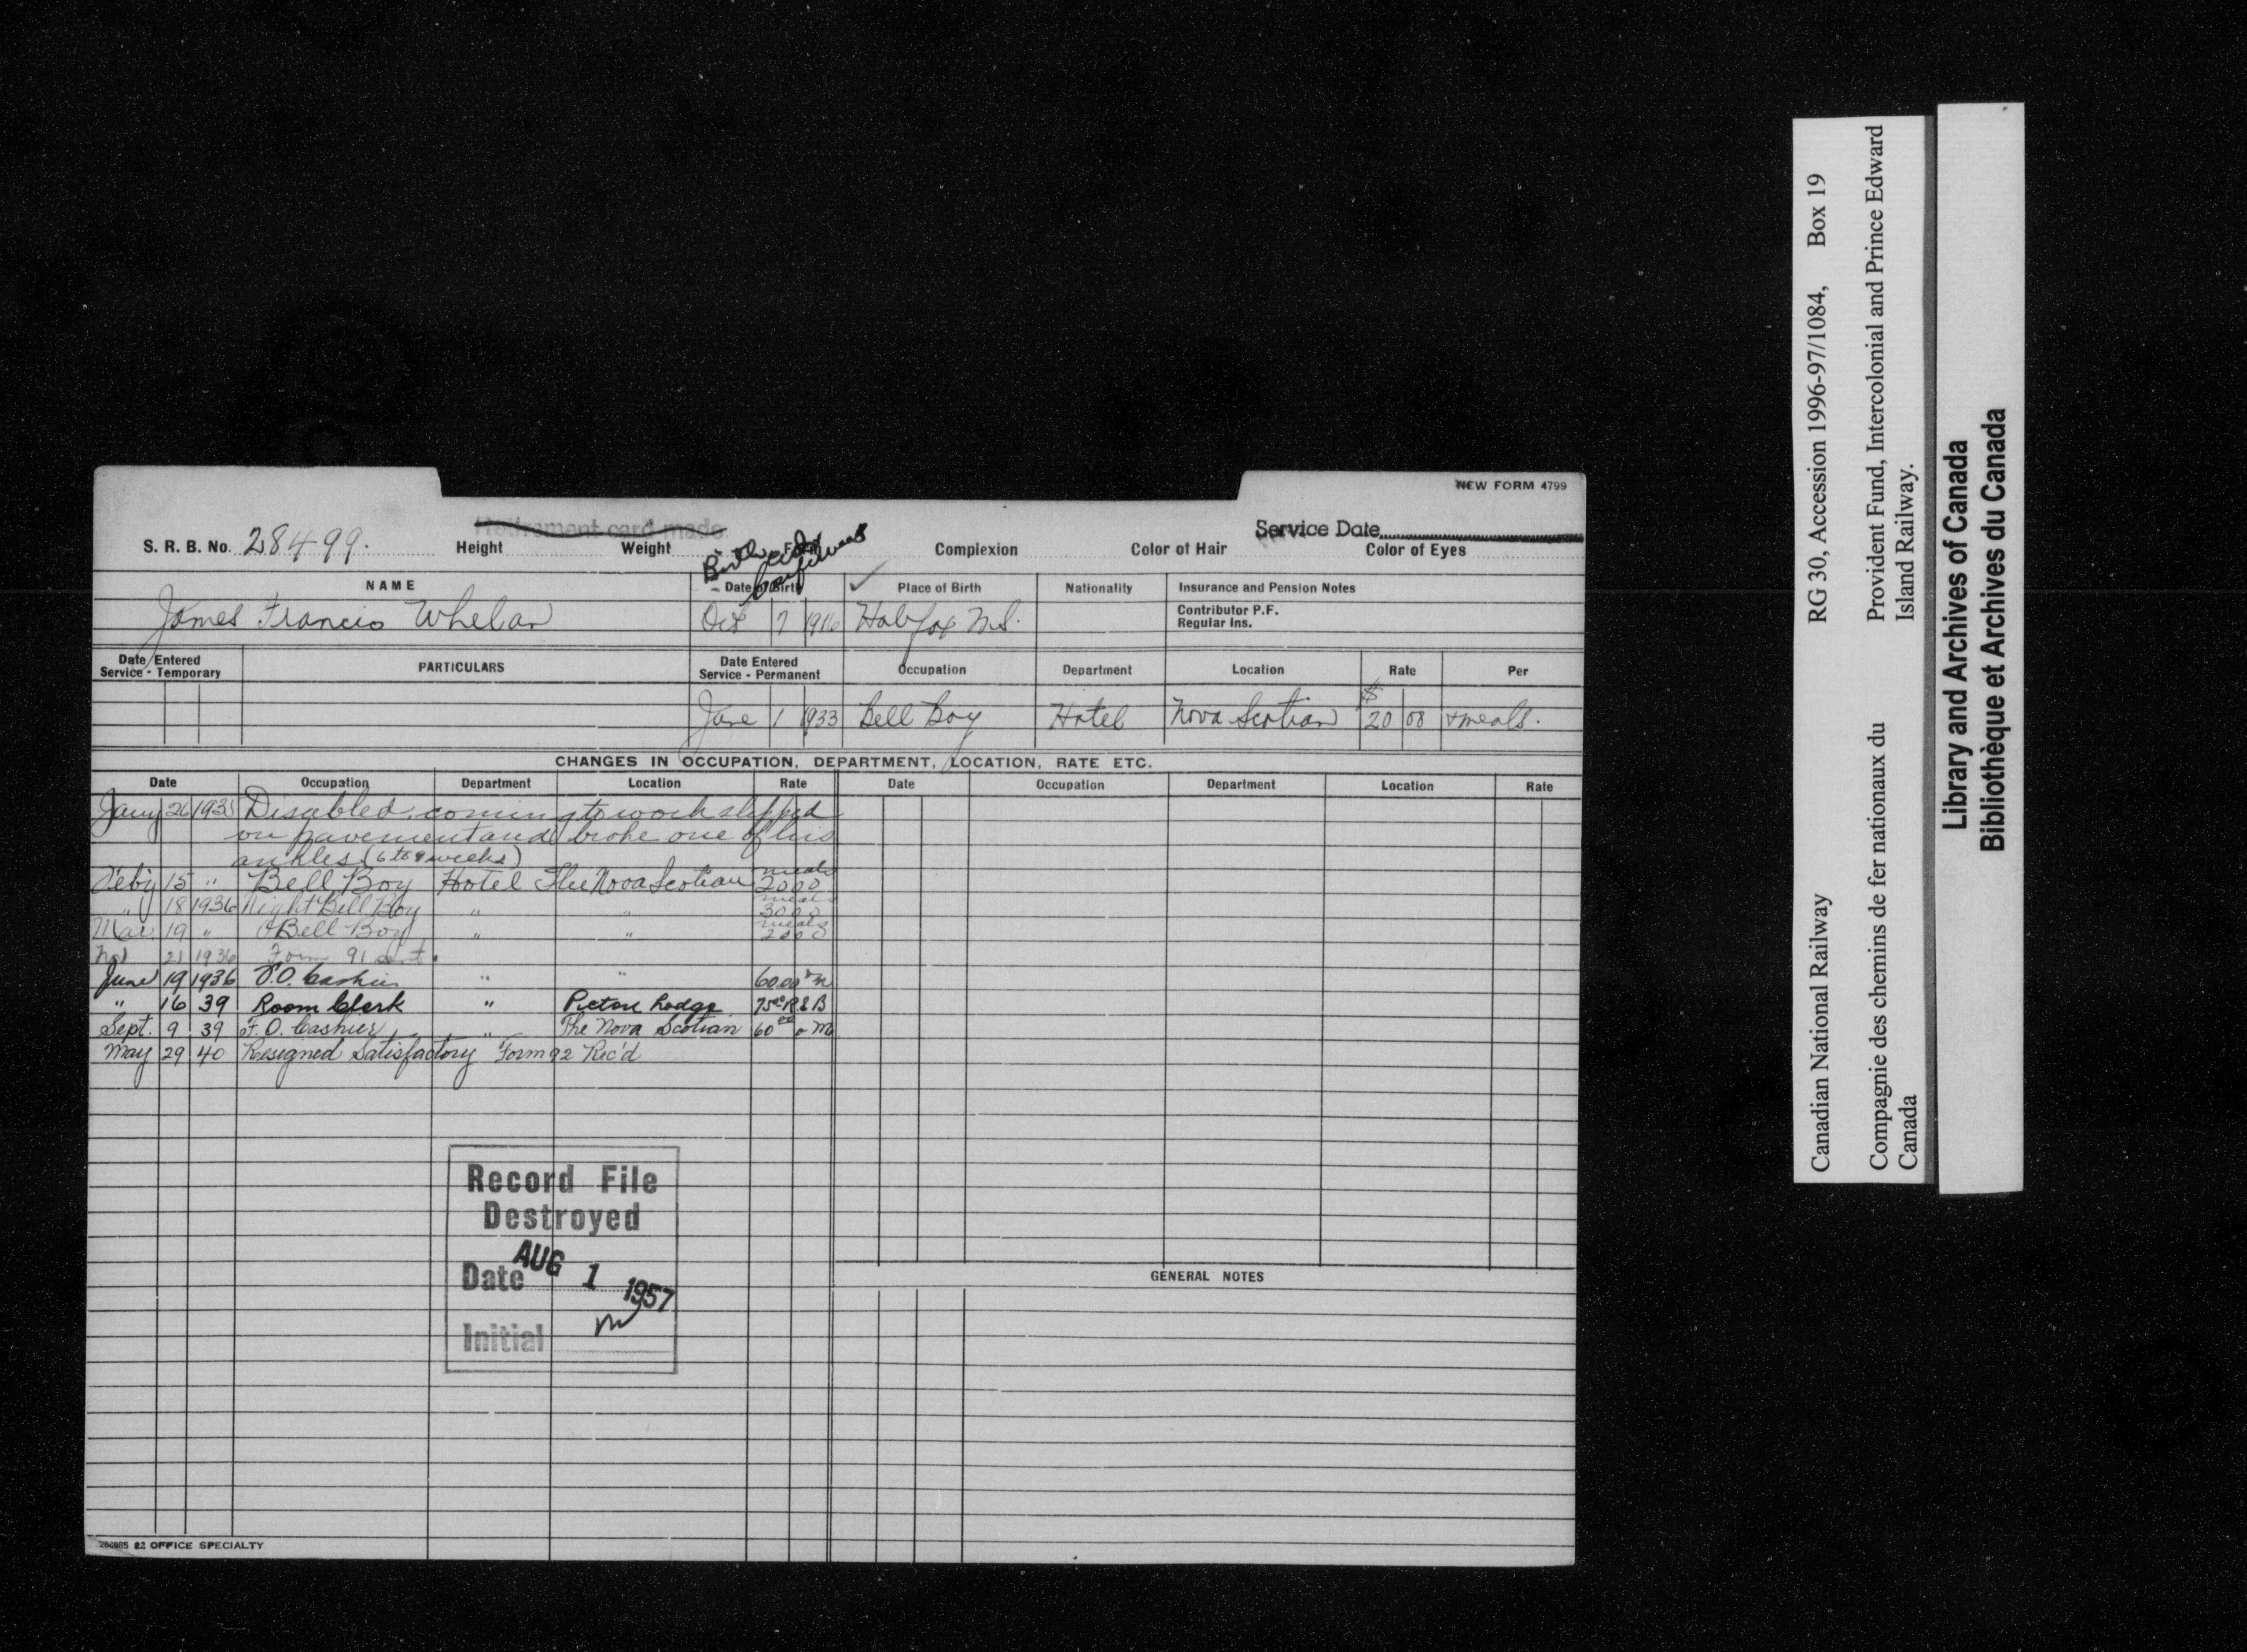 NEW FORM 4799
Retirement card made
Service Date
S. R. B. No. 28499.
Height
Weight
Form
Complexion
Color of Hair
Color of Eyes
Birth
NAME
Date of Birth
Place of Birth
Nationality
Insurance and Pension Notes
James Francis Whelan
Oct 7 1916
Halifax N.S.
Contributor P.F.
Regular Ins.
Date Entered
Service - Temporary
PARTICULARS
Date Entered
Service - Permanent
Occupation
Department
Location
Rate
Per
June 1 1933 Bell Boy Hotel Nova Scotian $ 20 00 + meals.
CHANGES IN OCCUPATION, DEPARTMENT, LOCATION, RATE ETC.
Date Occupation Department Location Rate Date Occupation Department Location Rate
Jany 26 1935 Disabled. coming to work slipped
on pavement and broke one of his
ankles (6 to 9 weeks)
Feby 15 " Bell Boy Hotel The Nova Scotian meals 20 00
" 18 1936 Night Bell Boy " " meals 30 00
Mar. 19 " Bell Boy " " meals 20 00
21 1936 Form 91 sent.
June 19 1936 F.O. Cashier " " 60.00
" 16 39 Room Clerk " Pictou Lodge 75 00 R & B
Sept. 9 39 F.O. Cashier " The Nova Scotian 60 00 & M
May 29 40 Resigned Satisfactory Form 92 Rec'd
Record File
Destroyed
Date AUG 1 1957
Initial
GENERAL NOTES
22 OFFICE SPECIALTY
Canadian National Railway RG 30, Accession 1996-97/1084, Box 19
Compagnie des chemins de fer nationaux du Provident Fund, Intercolonial and Prince Edward
Canada Island Railway.
Library and Archives of Canada
Bibliothèque et Archives du Canada